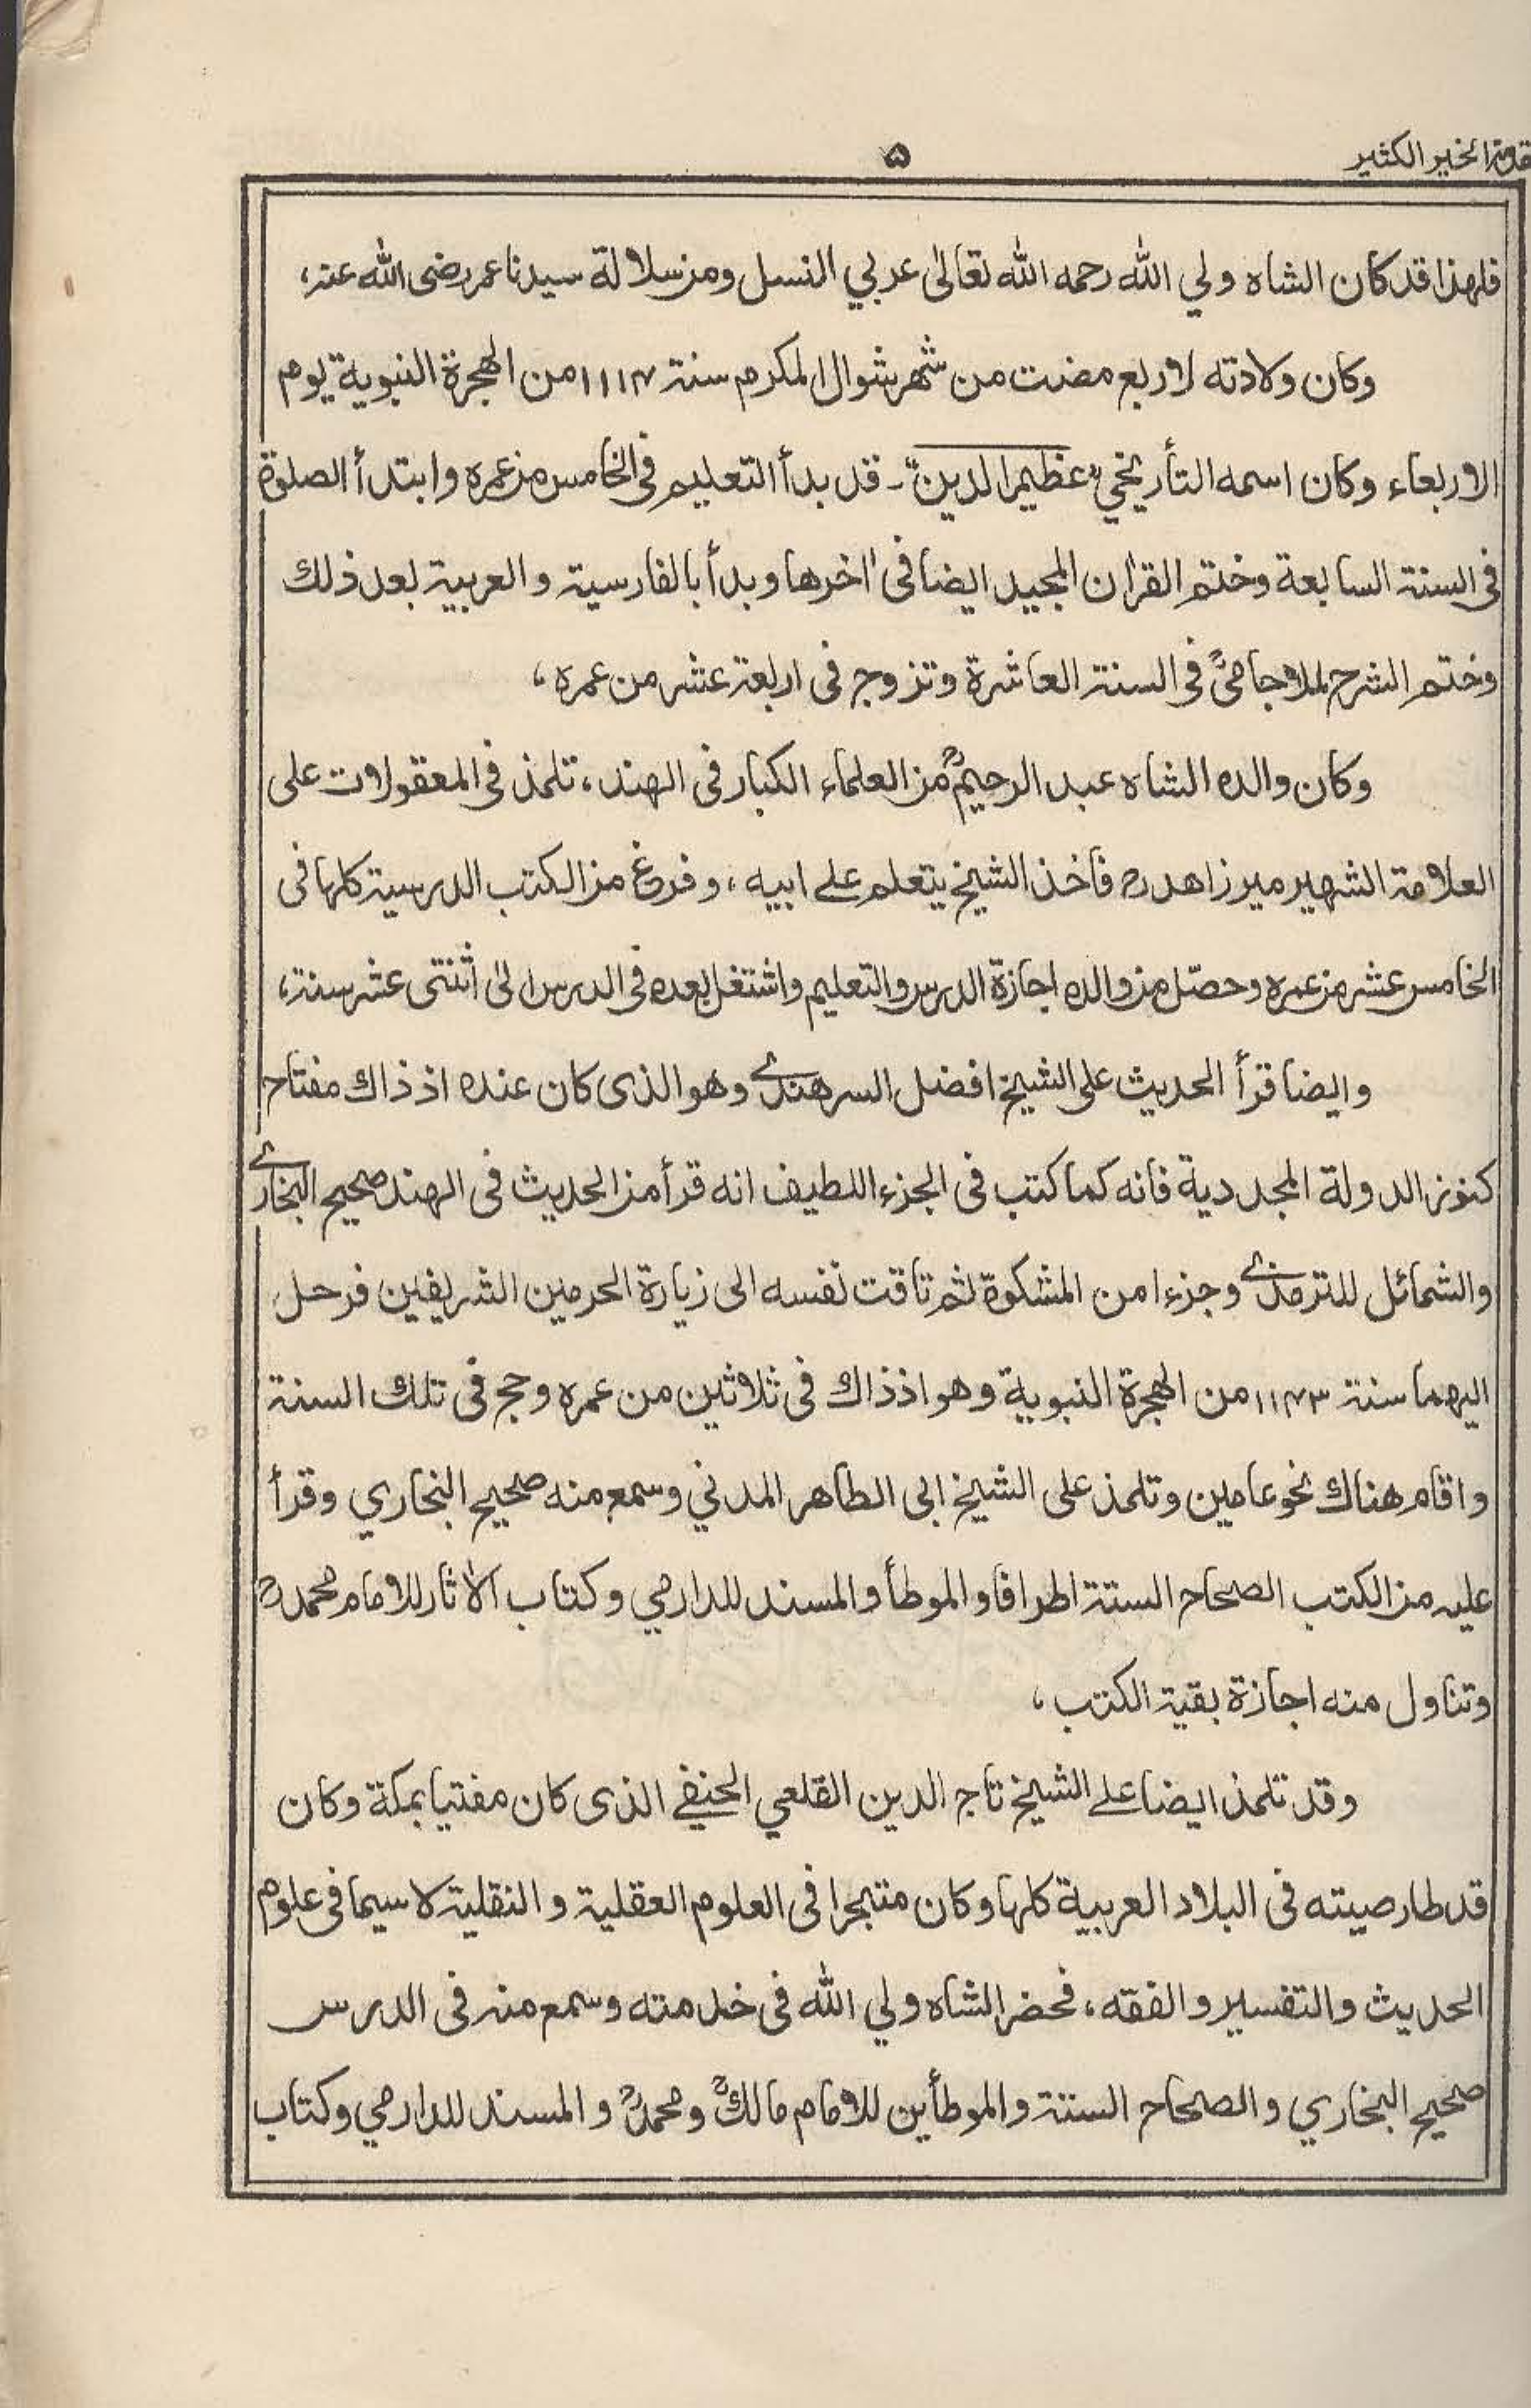 قدمة الخير الكثير
۵
فلهذا قد كان الشاه ولي الله رحمه الله تعالىٰ عربي النسل ومن سلالة سيدنا عمر رضى الله عنه،
وكان ولادته لاربع مضت من شهر شوال المكرم سنة ۱۱۱۴ من الهجرة النبوية يوم
الاربعاء وكان اسمه التأريخي "عظيم الدين" ـ قد بدأ التعليم فى الخامس من عمره وابتدأ الصلوٰة
فى السنة السابعة وختم القرآن المجيد ايضا فى اٰخرها وبدأ بالفارسية والعربية بعد ذلك
وختم الشرح لملا جامىؒ فى السنة العاشرة وتزوج فى اربعة عشر من عمره،
وكان والده الشاه عبد الرحيمؒ من العلماء الكبار فى الهند، تلمذ فى المعقولات على
العلامة الشهير مير زاهد رح فأخذ الشيخ يتعلم علے ابيه، وفرغ من الكتب الدرسية كلها فى
الخامس عشر من عمره وحصّل من والده اجازة الدرس والتعليم واشتغل بعده فى الدرس الىٰ اثنتى عشر سنة،
وايضا قرأ الحديث على الشيخ افضل السرهندے وهو الذى كان عنده اذ ذاك مفتاح
كنوز الدولة المجددية فانه كما كتب فى الجزء اللطيف انه قرأ من الحديث فى الهند صحيح البخارے
والشمائل للترمذے وجزءا من المشكوة ثم تاقت نفسه الى زيارة الحرمين الشريفين فرحل
اليهما سنة ۱۱۴۳ من الهجرة النبوية وهو اذ ذاك فى ثلاثين من عمره وحج فى تلك السنة
واقام هناك نحو عامين وتلمذ على الشيخ ابى الطاهر المدني وسمع منه صحيح البخاري وقرأ
عليه من الكتب الصحاح الستة اطرافا والموطأ والمسند للدارمي وكتاب الاٰثار للامام محمدؒ
وتناول منه اجازة بقية الكتب،
وقد تلمذ ايضا علے الشيخ تاج الدين القلعي الحنفے الذى كان مفتيا بمكة وكان
قد طار صيته فى البلاد العربية كلها وكان متبحرا فى العلوم العقلية والنقلية لا سيما فى علوم
الحديث والتفسير والفقه، فحضر الشاه ولي الله فى خدمته وسمع منه فى الدرس
صحيح البخاري والصحاح الستة والموطأين للامام مالكؒ ومحمدؒ والمسند للدارمي وكتاب